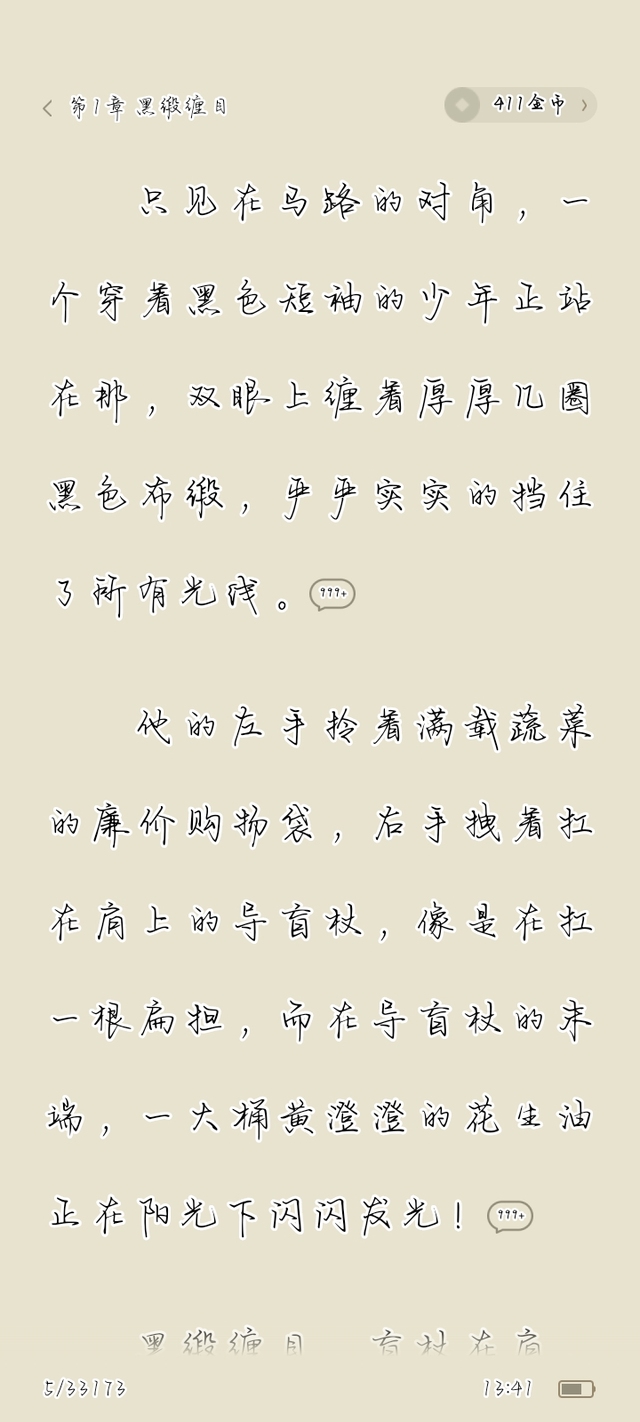 第1章 黑缎缠目
411金币
只见在马路的对角，一
个穿着黑色短袖的少年正站
在那，双眼上缠着厚厚几圈
黑色布缎，严严实实的挡住
了所有光线。
999+
他的左手拎着满载蔬菜
的廉价购物袋，右手拽着扛
在肩上的导盲杖，像是在扛
一根扁担，而在导盲杖的末
端，一大桶黄澄澄的花生油
正在阳光下闪闪发光！
999+
黑缎缠目 盲杖在肩
5/33173
13:41